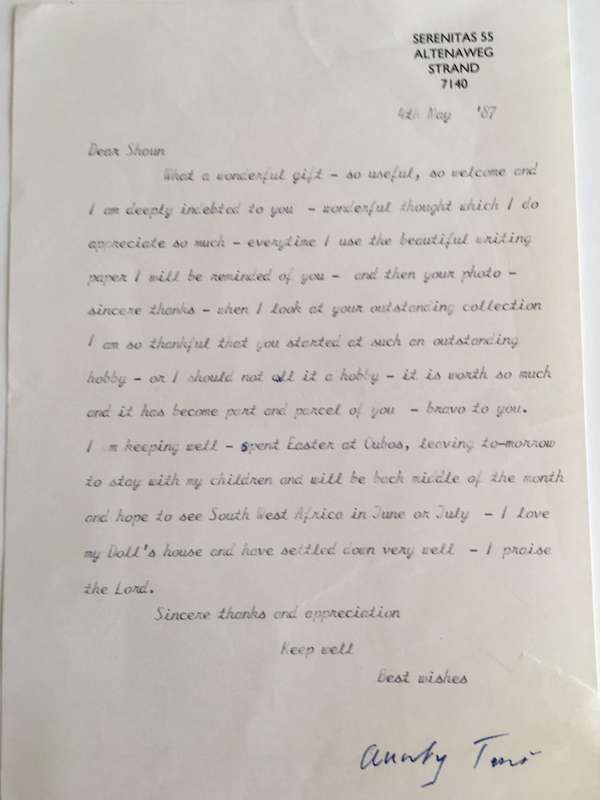 SERENITAS 55
ALTENAWEG
STRAND
7140
4th May '87
Dear Shaun
What a wonderful gift - so useful, so welcome and
I am deeply indebted to you - wonderful thought which I do
appreciate so much - everytime I use the beautiful writing
paper I will be reminded of you - and then your photo -
sincere thanks - when I look at your outstanding collection
I am so thankful that you started at such an outstanding
hobby - or I should not all it a hobby - it is worth so much
and it has become part and parcel of you - bravo to you.
I m keeping well - spent Easter at Cubos, leaving to-morrow
to stay with my children and will be back middle of the month
and hope to see South West Africa in June or July - I love
my Doll's house and have settled down very well - I praise
the Lord.
Sincere thanks and appreciation
Keep well
Best wishes